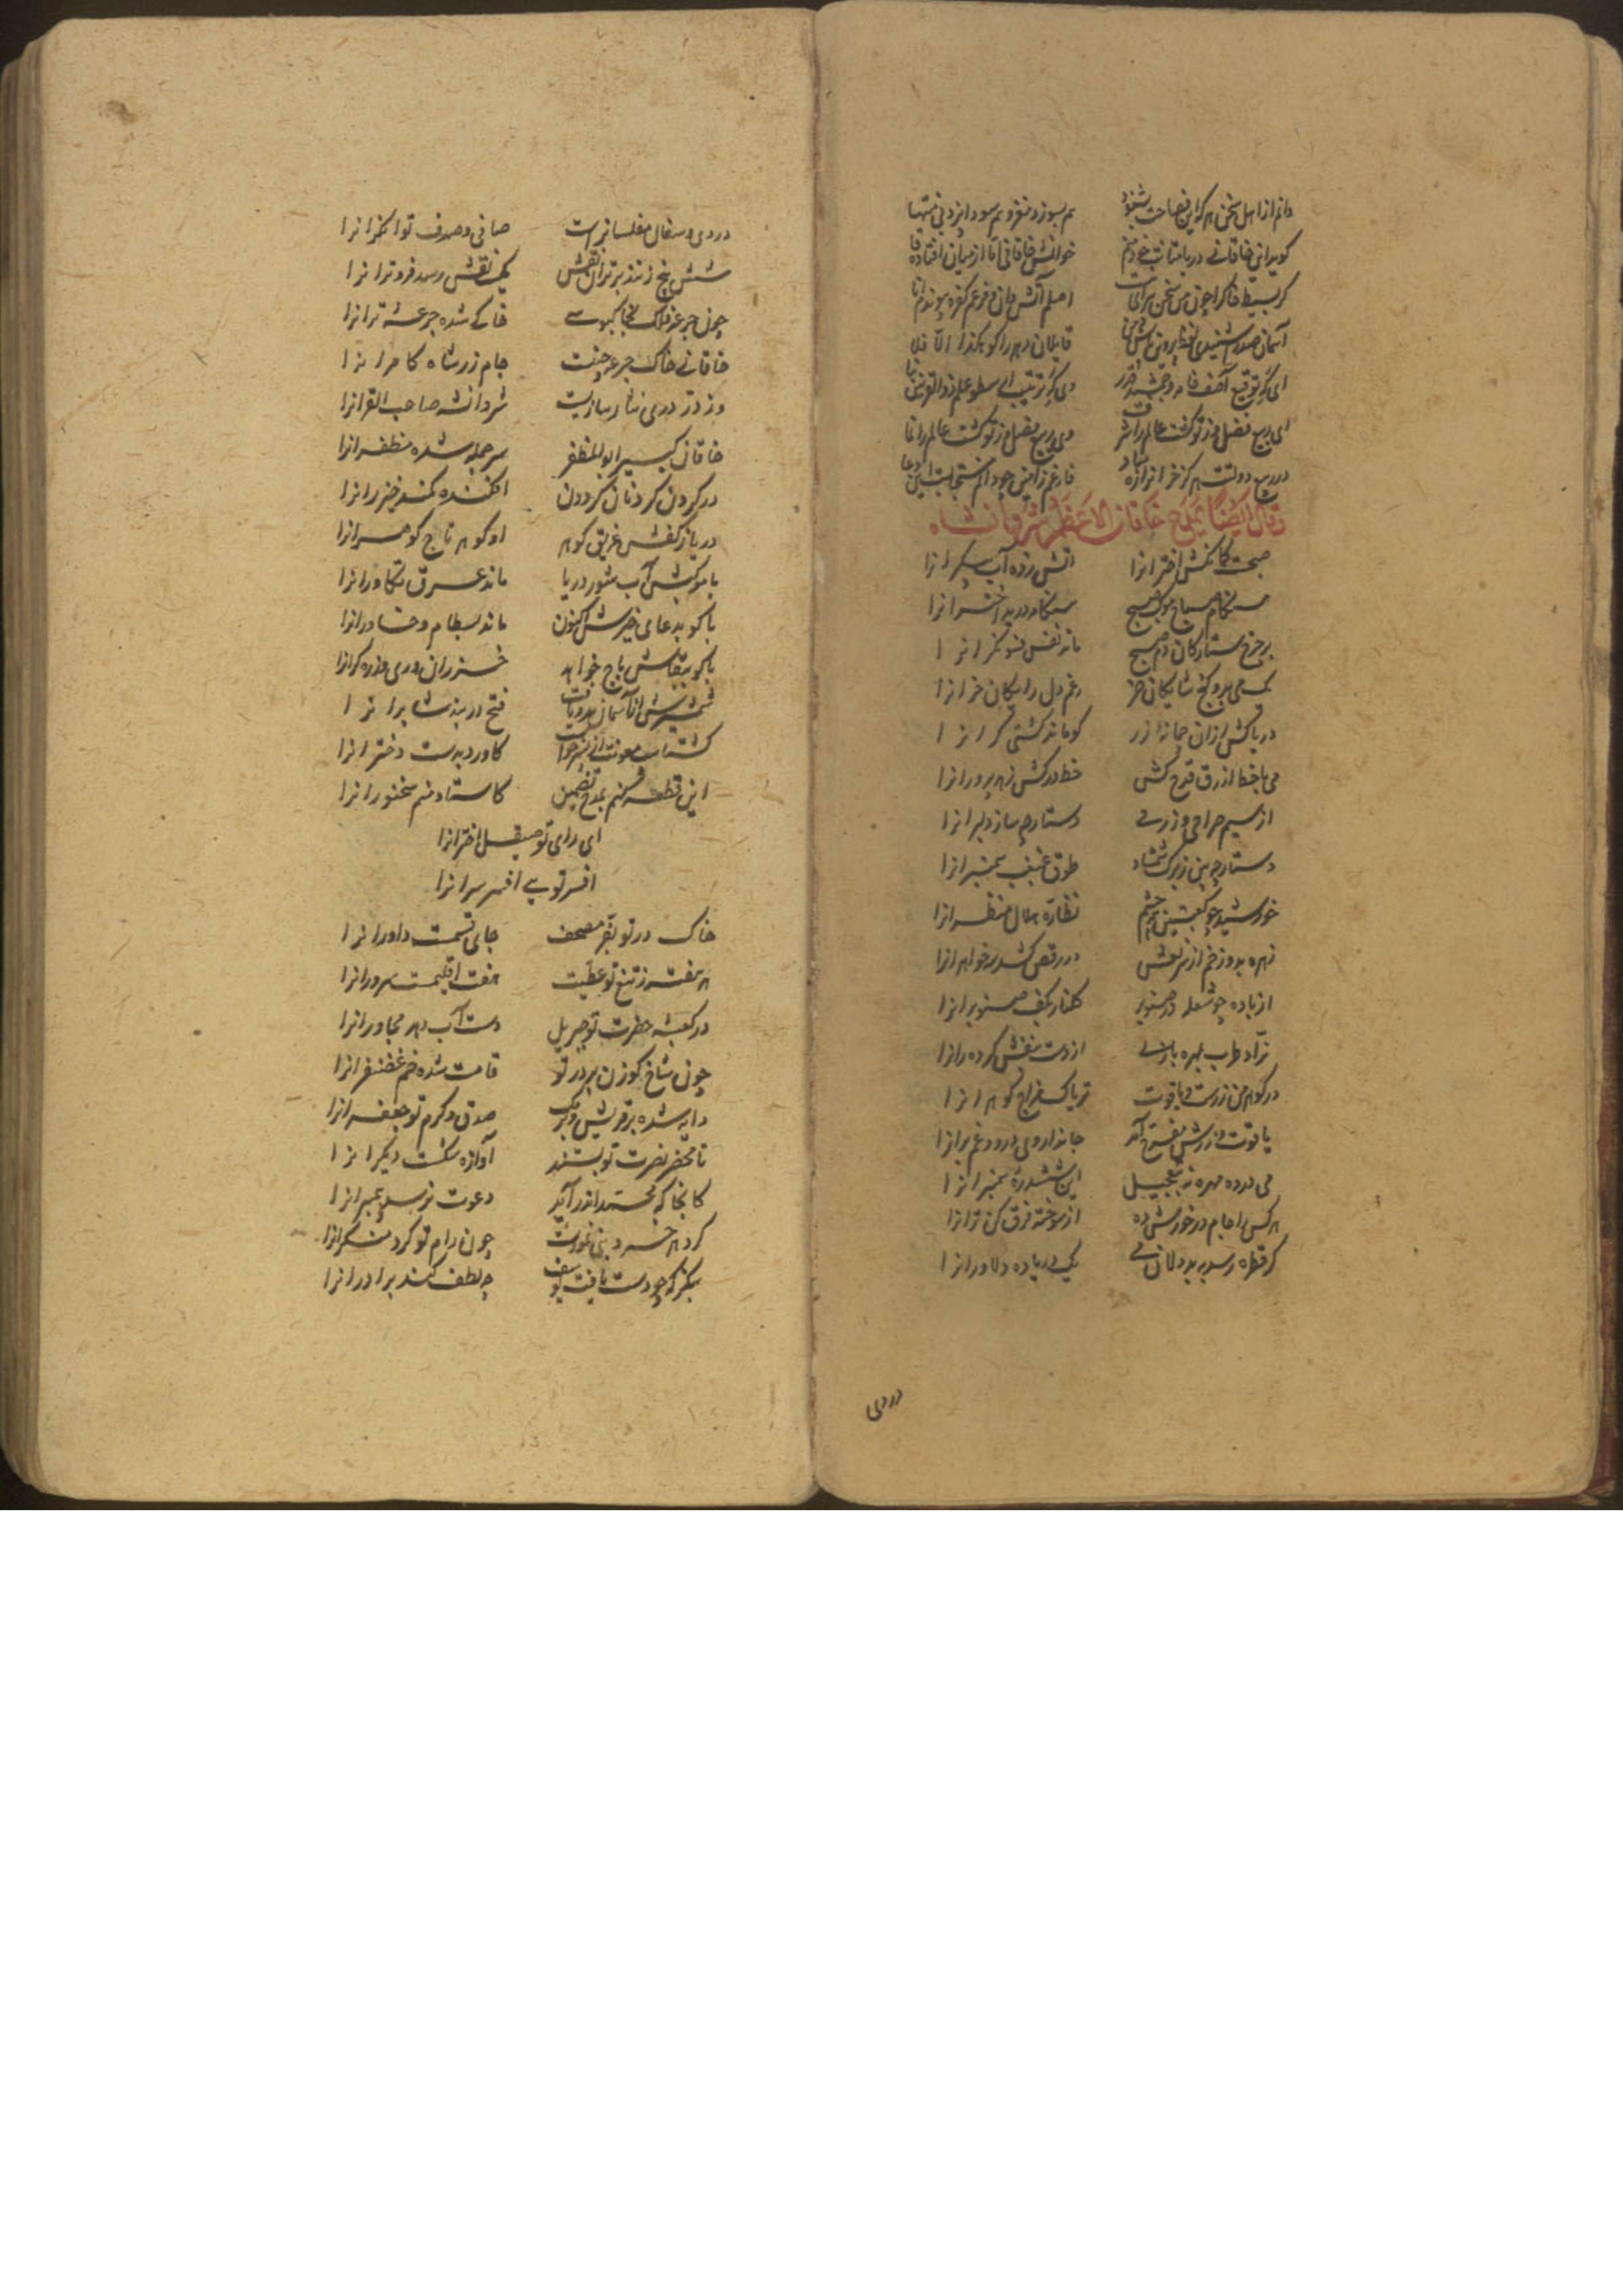 دانم از اهل سخن هر که این فصاحت بشنود هم بسوزد مغز و هم سودا پزد بی منتها
گوید این خاقانی دریا مثابت خود منم خوانمش خاقانی اما از میان افتاده قا
گر بسیط خاکرا چون من سخن پیرای هست اصلم آتش دان و فرعم کفر و پیوندم ابا
آسمان صدرا شنیدی لفظ پروین بکش قایلان دهر را گو هکذا والا فلا
ای گه توقیع آصف خامه و جمشید قدر وی گه ترتیب ارسطو علم ذوالقرنین
ای ربیع فضل وز تو گشت عالم را شرف وی ربیع فضل وز تو گشت عالم را نما
در ربیع دولتت هرگز خزان را ره مباد فارغم زآمین چو دانم مستجابست این دعا
وقال ایضا یمدح خاقان الاعظم شروانشاه
صبحست کمانکش اخترانرا آتش زده آب پیکرانرا
هنگام صباح موکب صبح هنگامه دریده اخترانرا
بر چرخ ستارگان دم صبح مانده نفس فسونگرانرا
یک می بدو گنج شایگان خر رغم دل رایگان خرانرا
دریاکش ازان چمانه زر کو ماند کشتی گرانرا
می تا خط ازرق قدح کش خط درکش زهد پرورانرا
از سیم صراحی و زر می دستارچه ساز دلبرانرا
دستارچه بین ز برگ شمشاد طوق غبغب سمنبرانرا
خورشید چو کعبتین همه چشم نظاره هلال منظرانرا
زهره بدو زخم از سر نعش در رقص کشد سه خواهرانرا
از باده چو شعله و صنوبر گلنار بکف صنوبرانرا
نراد طرب بمهره بازی از دست بنفش کرده رانرا
در گوهر می زرست و یاقوت تریاک مزاج گوهرانرا
یاقوت و زرش مفرح آمد جانداروی درد غم برانرا
می درده و مهره نه بتعجیل این ششدره ستمبرانرا
هر کس را جام در خورش ده از سوخته فرق کن ترانرا
گر قطره رسد ببد دلان می یک دریا ده دلاورانرا
دردی
دردی و سفال مفلسانراست صافی و صدف توانگرانرا
شش پنج زنند برتران نقش یک نقش رسد فروترانرا
چون جرعه فلک بخاک بوسی خاکی شده جرعه ترانرا
خاقانی خاک جرعه چینست جام زر شاه کامرانرا
وز در دری نثار سازیست شروانشه صاحب القرانرا
خاقان کبیر ابوالمظفر سر جمله شده مظفرانرا
در گردن گردنان گردون افکنده کمند خیزرانرا
دریا ز کفش غریق گوهر او گوهر تاج گوهرانرا
با موکبش آب شور دریا ماند عرق تکاورانرا
باکو بدعای خیرش اکنون ماند بسطام و خاورانرا
باکو ببقاش باج خواهد خزران و ری و زره گرانرا
شمشیرش از آسمان مدد یافت فتح دربند شابرانرا
گشتاسب معونت از پسر خواست کاورد بدست دخترانرا
این قطعه کنم بمدح تضمین کاستاد منم سخنورانرا
ای رای تو صیقل اخترانرا
افسر توبی افسر سرانرا
خاک در تو بقدر مصحف جای قسمت داورانرا
هر هفته ز تیغ تو عطیت هفت اقلیمست سرورانرا
در کعبه حضرت تو جبریل دست آب دهد مجاورانرا
چون شاخ گوزن بر در تو قامت شده خم غضنفرانرا
دایه شده بر قریش و برمک صدق و کرم تو جعفرانرا
تا محضر نصرت تو بستند آوازه شکست دیگرانرا
کانجا که محمد اندر آید دعوت نرسد پیمبرانرا
کرد هر خسرو بنی غورت چون رام تو کرد منکرانرا
بنگر که چو دست یافت یوسف چه لطف کند برادرانرا